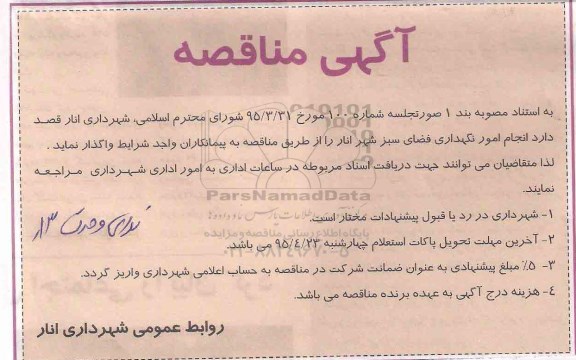 آگهی مناقصه
به استناد مصوبه بند ۱ صورتجلسه شماره ۱۰۰ مورخ ۹۵/۳/۳۱ شورای محترم اسلامی، شهرداری انار قصد
دارد انجام امور نگهداری فضای سبز شهر انار را از طریق مناقصه به پیمانکاران واجد شرایط واگذار نماید.
لذا متقاضیان می توانند جهت دریافت اسناد مربوطه در ساعات اداری به امور اداری شهرداری مراجعه
نمایند.
ParsNamadData
۱- شهرداری در رد یا قبول پیشنهادات مختار است.
۲- آخرین مهلت تحویل پاکات استعلام چهارشنبه ۹۵/٤/۲۳ می باشد.
۳- ۵٪ مبلغ پیشنهادی به عنوان ضمانت شرکت در مناقصه به حساب اعلامی شهرداری واریز گردد.
٤- هزینه درج آگهی به عهده برنده مناقصه می باشد.
روابط عمومی شهرداری انار